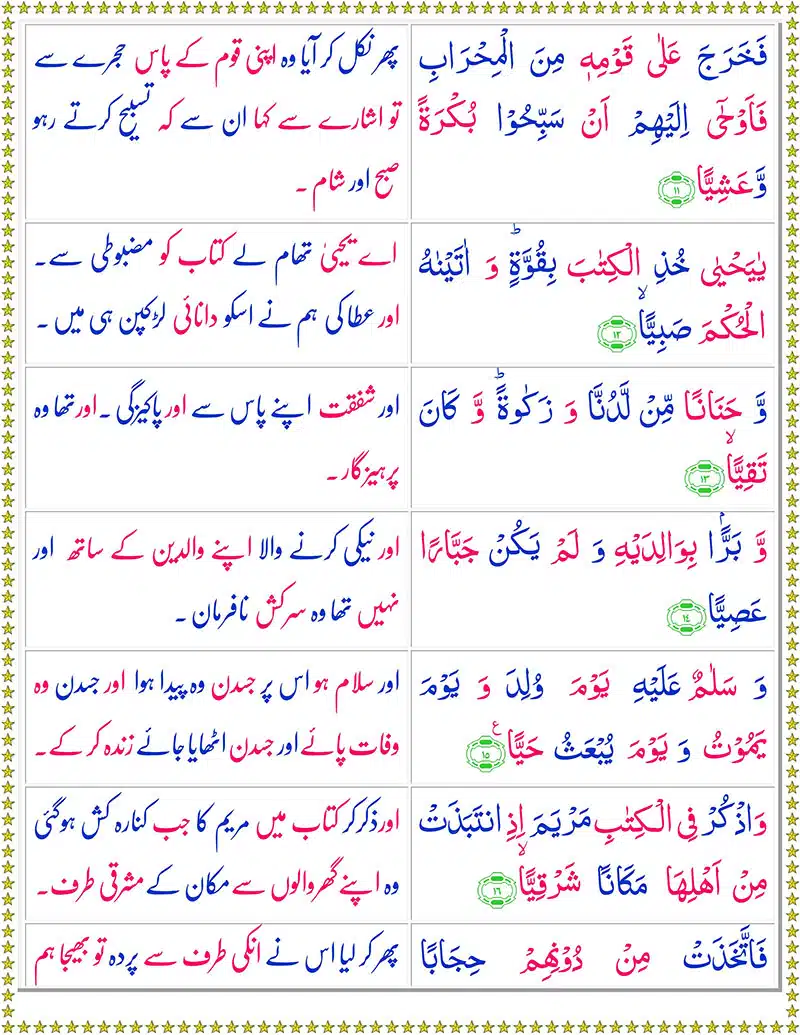 فَخَرَجَ عَلٰى قَوْمِهٖ مِنَ الْمِحْرَابِ
فَاَوْحٰٓى اِلَيْهِمْ اَنْ سَبِّحُوْا بُكْرَةً
وَّعَشِيًّا ١١
پھر نکل کر آیا وہ اپنی قوم کے پاس حجرے سے
تو اشارے سے کہا ان سے کہ تسبیح کرتے رہو
صبح اور شام ۔
يٰيَحْيٰى خُذِ الْكِتٰبَ بِقُوَّةٍؕ وَ اٰتَيْنٰهُ
الْحُكْمَ صَبِيًّاۙ ١٢
اے یحییٰ تھام لے کتاب کو مضبوطی سے۔
اور عطا کی ہم نے اسکو دانائی لڑکپن ہی میں ۔
وَّ حَنَانًا مِّنْ لَّدُنَّا وَ زَكٰوةًؕ وَّ كَانَ
تَقِيًّاۙ ١٣
اور شفقت اپنے پاس سے اور پاکیزگی ۔ اور تھا وہ
پرہیزگار ۔
وَّ بَرًّۢا بِوَالِدَيْهِ وَ لَمْ يَكُنْ جَبَّارًا
عَصِيًّا ١٤
اور نیکی کرنے والا اپنے والدین کے ساتھ اور
نہیں تھا وہ سرکش نافرمان ۔
وَ سَلٰمٌ عَلَيْهِ يَوْمَ وُلِدَ وَ يَوْمَ
يَمُوْتُ وَ يَوْمَ يُبْعَثُ حَيًّا ع ١٥
اور سلام ہو اس پر جسدن وہ پیدا ہوا اور جسدن وہ
وفات پائے اور جسدن اٹھایا جائے زندہ کر کے۔
وَاذْكُرْ فِى الْكِتٰبِ مَرْيَمَ اِذِ انْتَبَذَتْ
مِنْ اَهْلِهَا مَكَانًا شَرْقِيًّاۙ ١٦
اور ذکر کر کتاب میں مریم کا جب کنارہ کش ہوگئی
وہ اپنے گھر والوں سے مکان کے مشرقی طرف۔
فَاتَّخَذَتْ مِنْ دُوْنِهِمْ حِجَابًا
پھر کر لیا اس نے انکی طرف سے پردہ تو بھیجا ہم